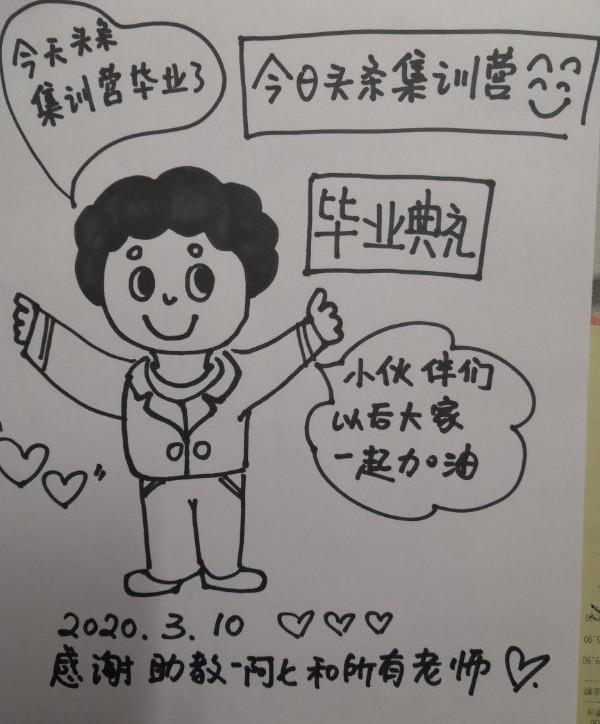 今天头条
集训营毕业了
今日头条集训营
毕业典礼
小伙伴们
以后大家
一起加油
2020.3.10
感谢助教-阿七和所有老师